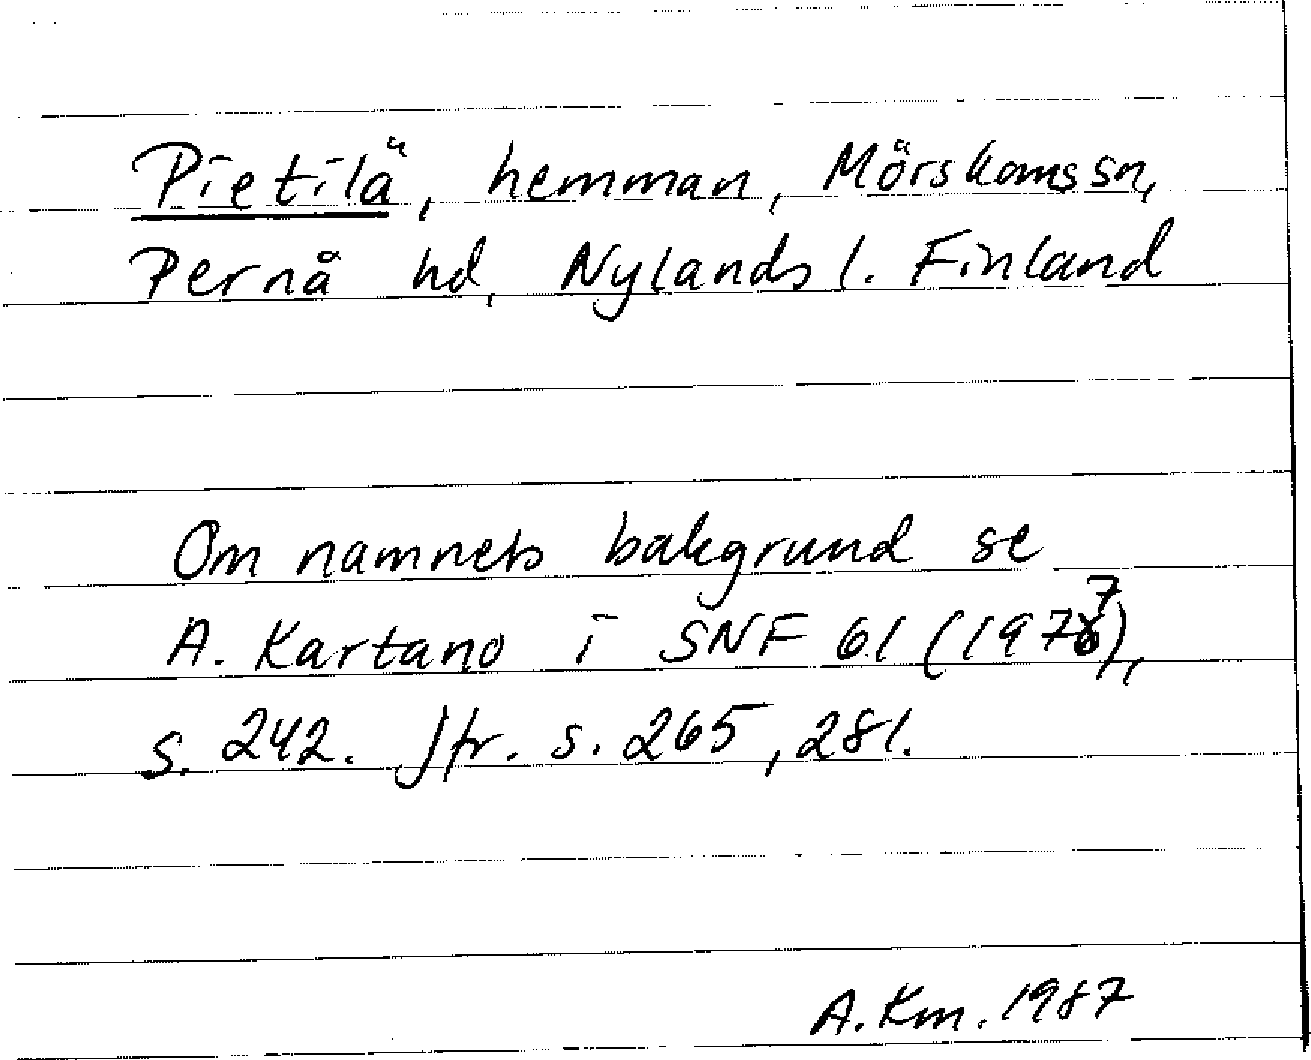 Pietilä, hemman, Mörskoms sn,
Pernå hd, Nylands l. Finland
Om namnets bakgrund se
A. Kartano i SNF 61 (1977),
s. 242. Jfr. s. 265, 281.
A. Km. 1987